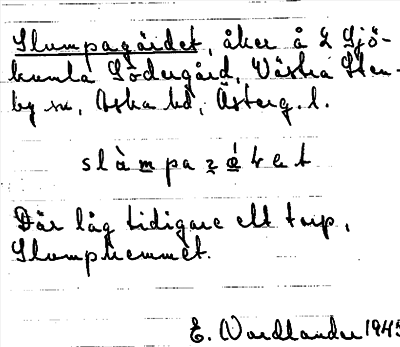 Slumpagärdet, åker å 2 Sjö-
kumla Södergård, Västra Sten-
by sn, Aska hd, Österg. l.
slàmpa
Där låg tidigare ett torp,
Slumphemmet.
E. Nordlander 1945